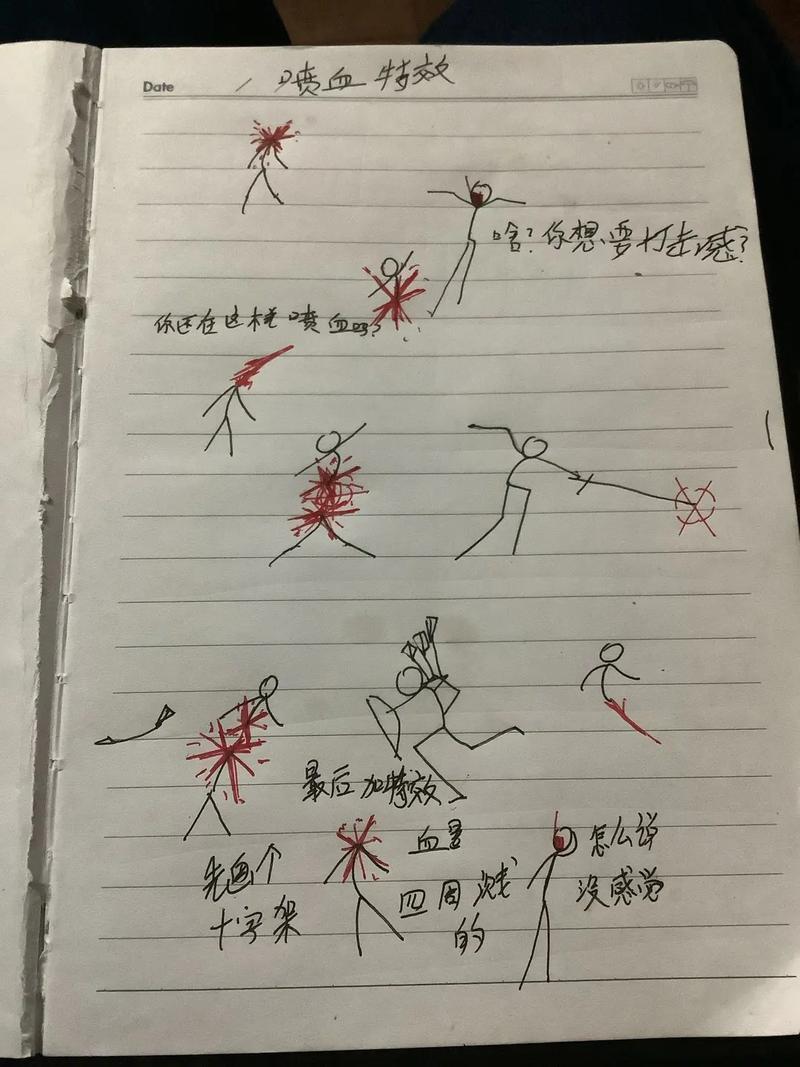 Date
喷血特效
啥?你想要打击感?
你还在这样喷血吗?
最后加特效
先画个
十字架
血量
四周溅
的
怎么说
没感觉